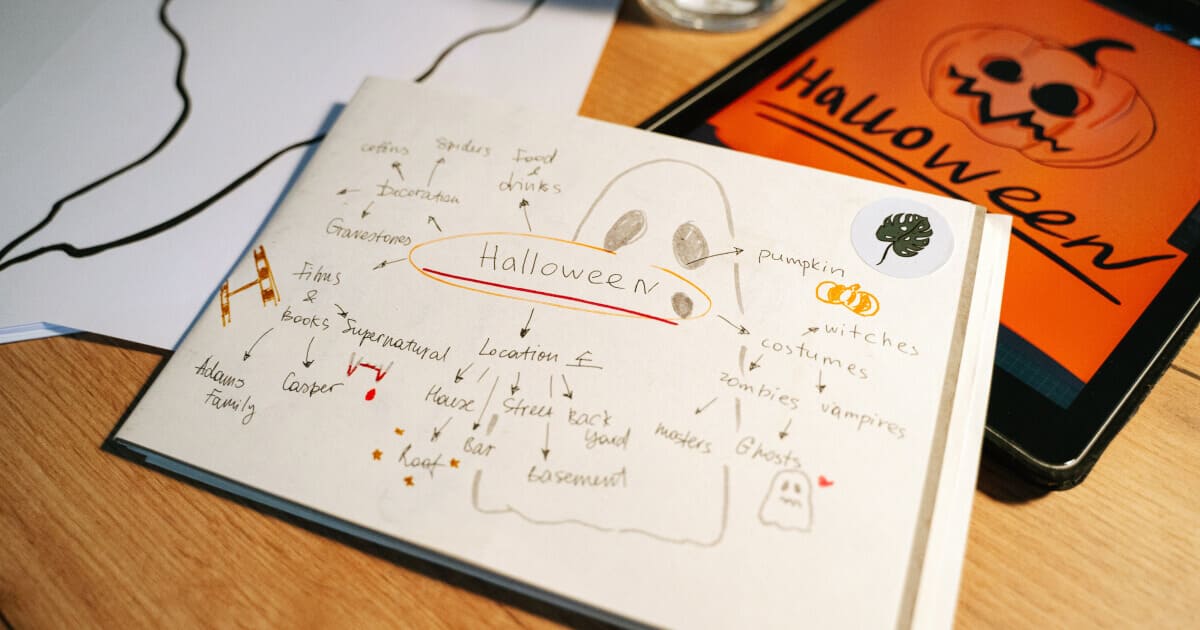 Halloween
coffins
Spiders
Food
&
drinks
Decoration
Gravestones
Halloween
pumpkin
Films
&
Books
Supernatural
Adams
Family
Casper
Location
House
Street
Back
Yard
Bar
Roof
basement
costumes
witches
zombies
vampires
masters
Ghosts